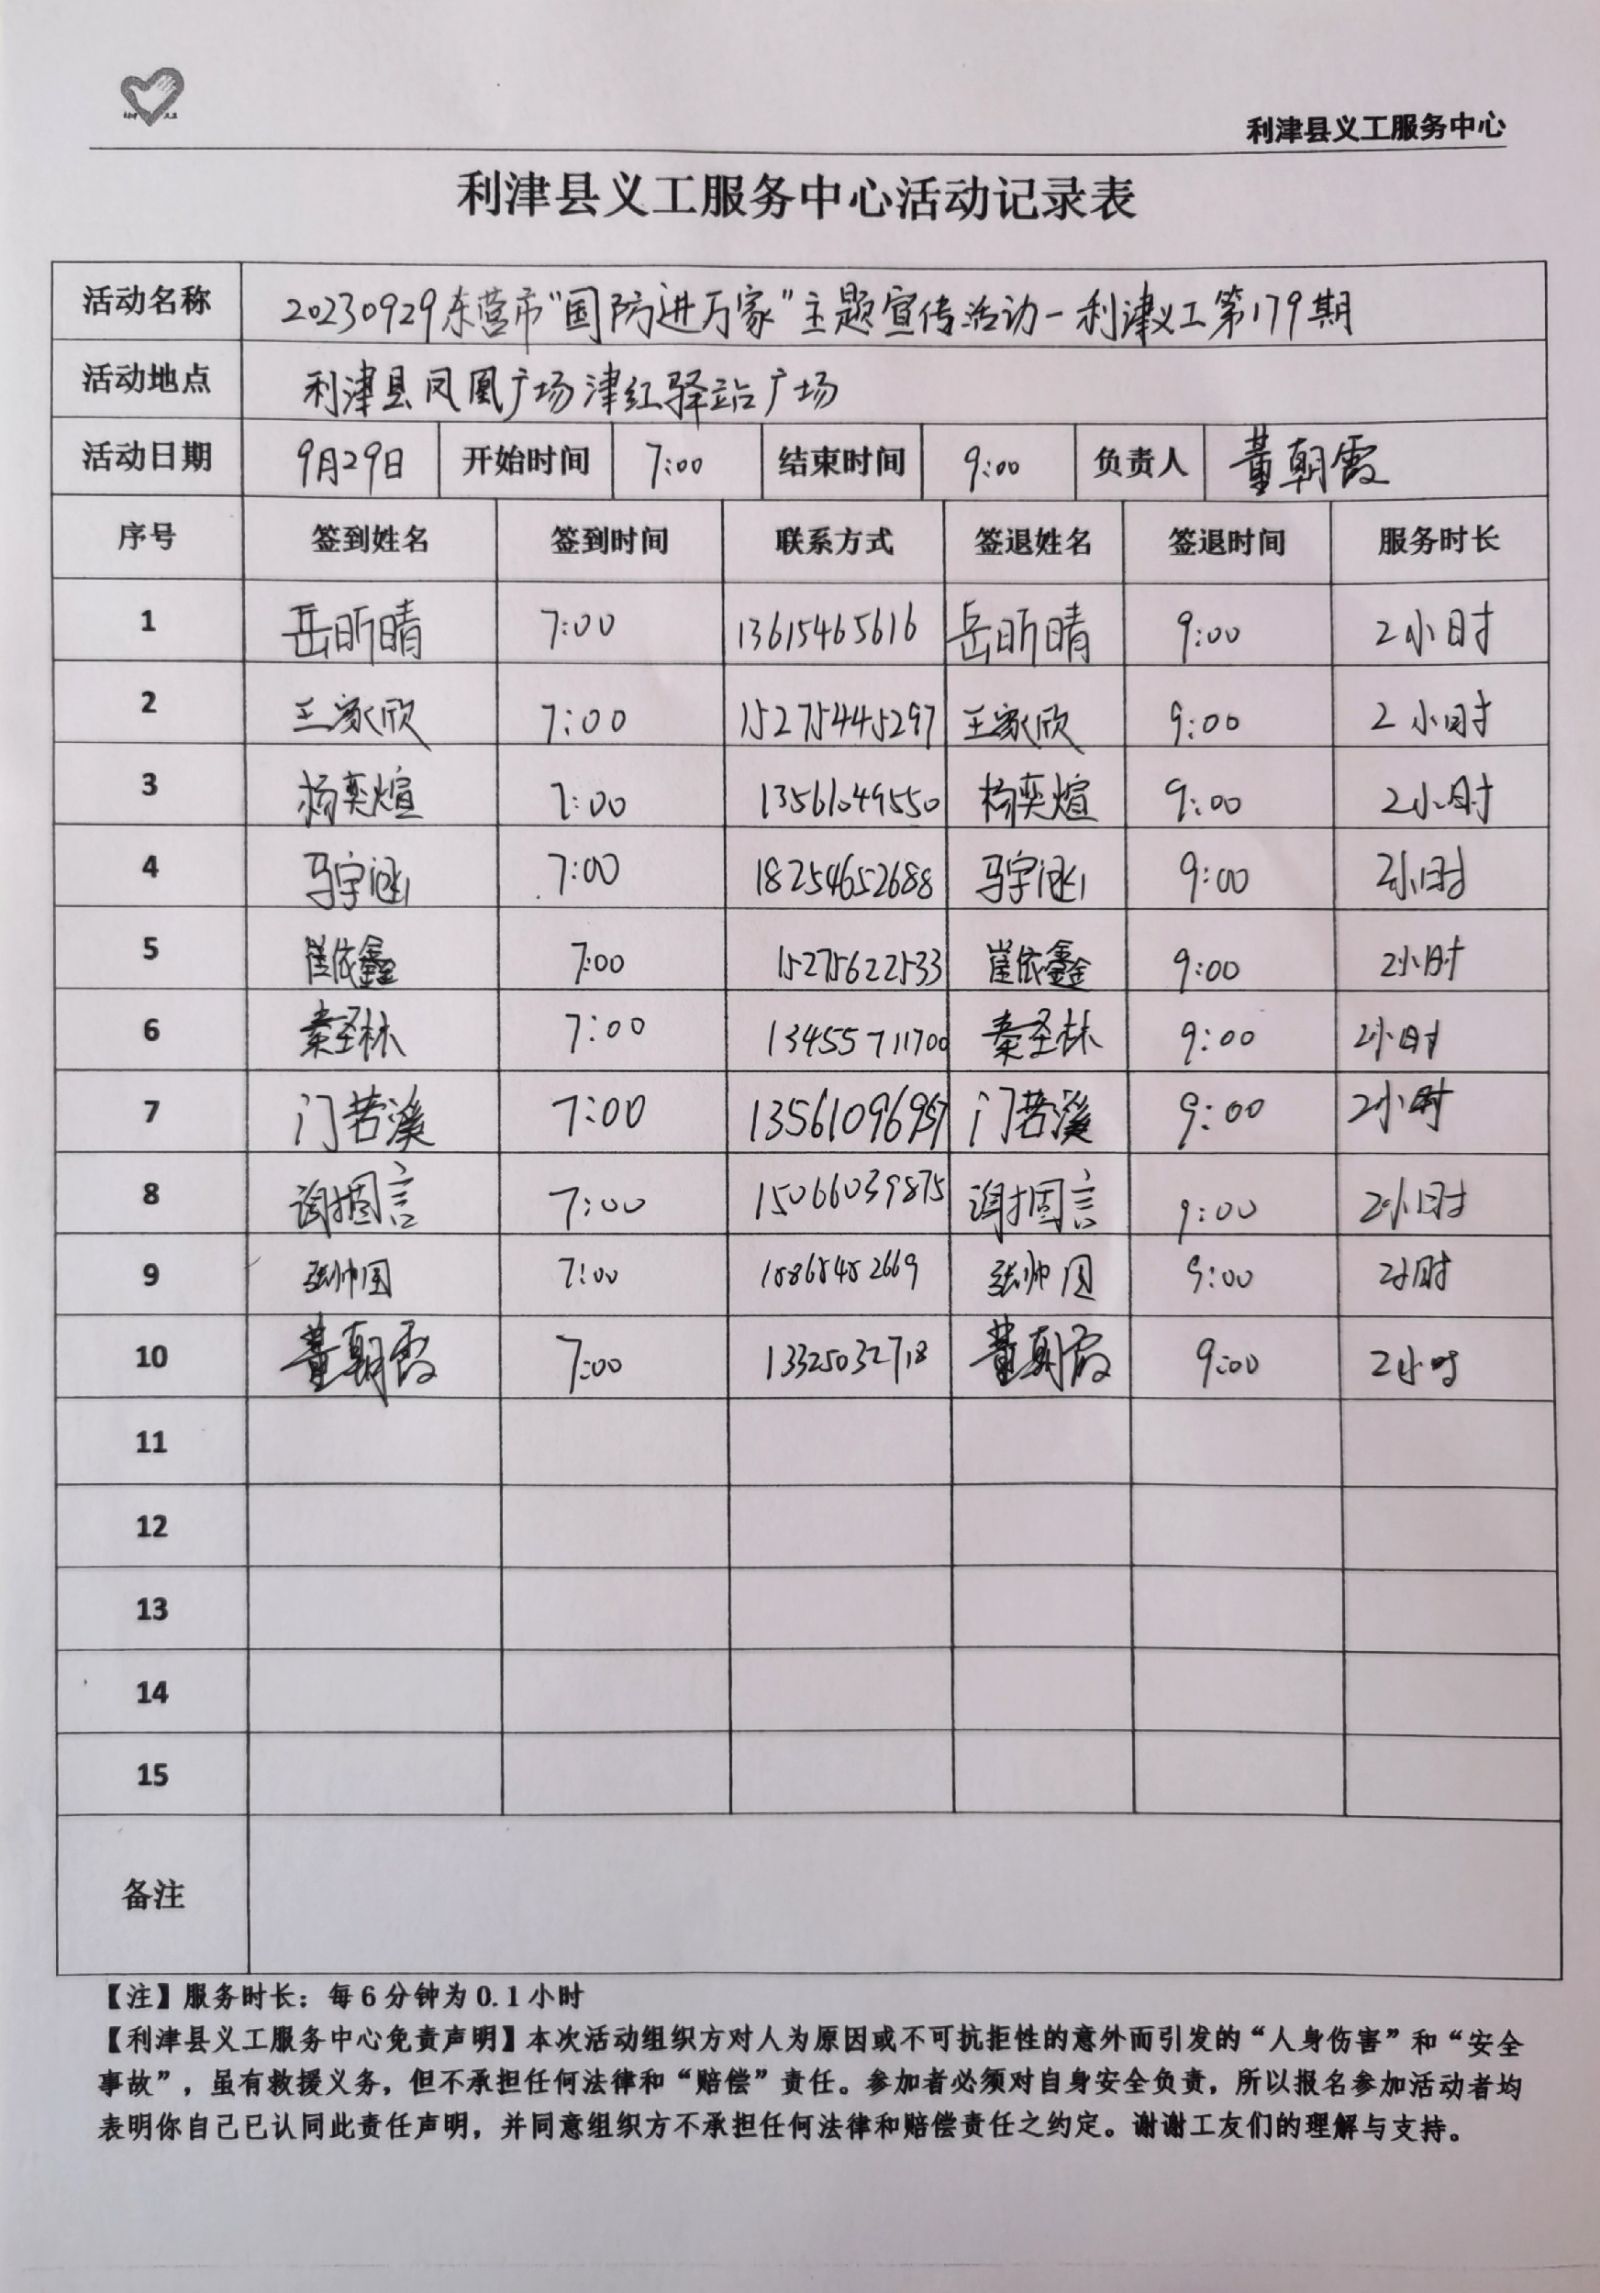 利津县义工服务中心
利津县义工服务中心活动记录表
活动名称 20230929东营市“国防进万家”主题宣传活动-利津义工第179期
活动地点 利津县凤凰广场津红驿站广场
活动日期 9月29日 开始时间 7:00 结束时间 9:00 负责人 董朝霞
序号 签到姓名 签到时间 联系方式 签退姓名 签退时间 服务时长
1 岳昕晴 7:00 13615465616 岳昕晴 9:00 2小时
2 王家欣 7:00 15275445297 王家欣 9:00 2小时
3 杨奕煊 7:00 13561049550 杨奕煊 9:00 2小时
4 马宇涵 7:00 18254652688 马宇涵 9:00 2小时
5 崔依鑫 7:00 15275622533 崔依鑫 9:00 2小时
6 秦圣林 7:00 13455711700 秦圣林 9:00 2小时
7 门若溪 7:00 门若溪 9:00 2小时
8 7:00 15066039875 9:00 2小时
9 张帅国 7:00 张帅国 9:00 2小时
10 董朝霞 7:00 13325032718 董朝霞 9:00 2小时
11
12
13
14
15
备注
【注】服务时长：每6分钟为0.1小时
【利津县义工服务中心免责声明】本次活动组织方对人为原因或不可抗拒性的意外而引发的“人身伤害”和“安全
事故”，虽有救援义务，但不承担任何法律和“赔偿”责任。参加者必须对自身安全负责，所以报名参加活动者均
表明你自己已认同此责任声明，并同意组织方不承担任何法律和赔偿责任之约定。谢谢工友们的理解与支持。